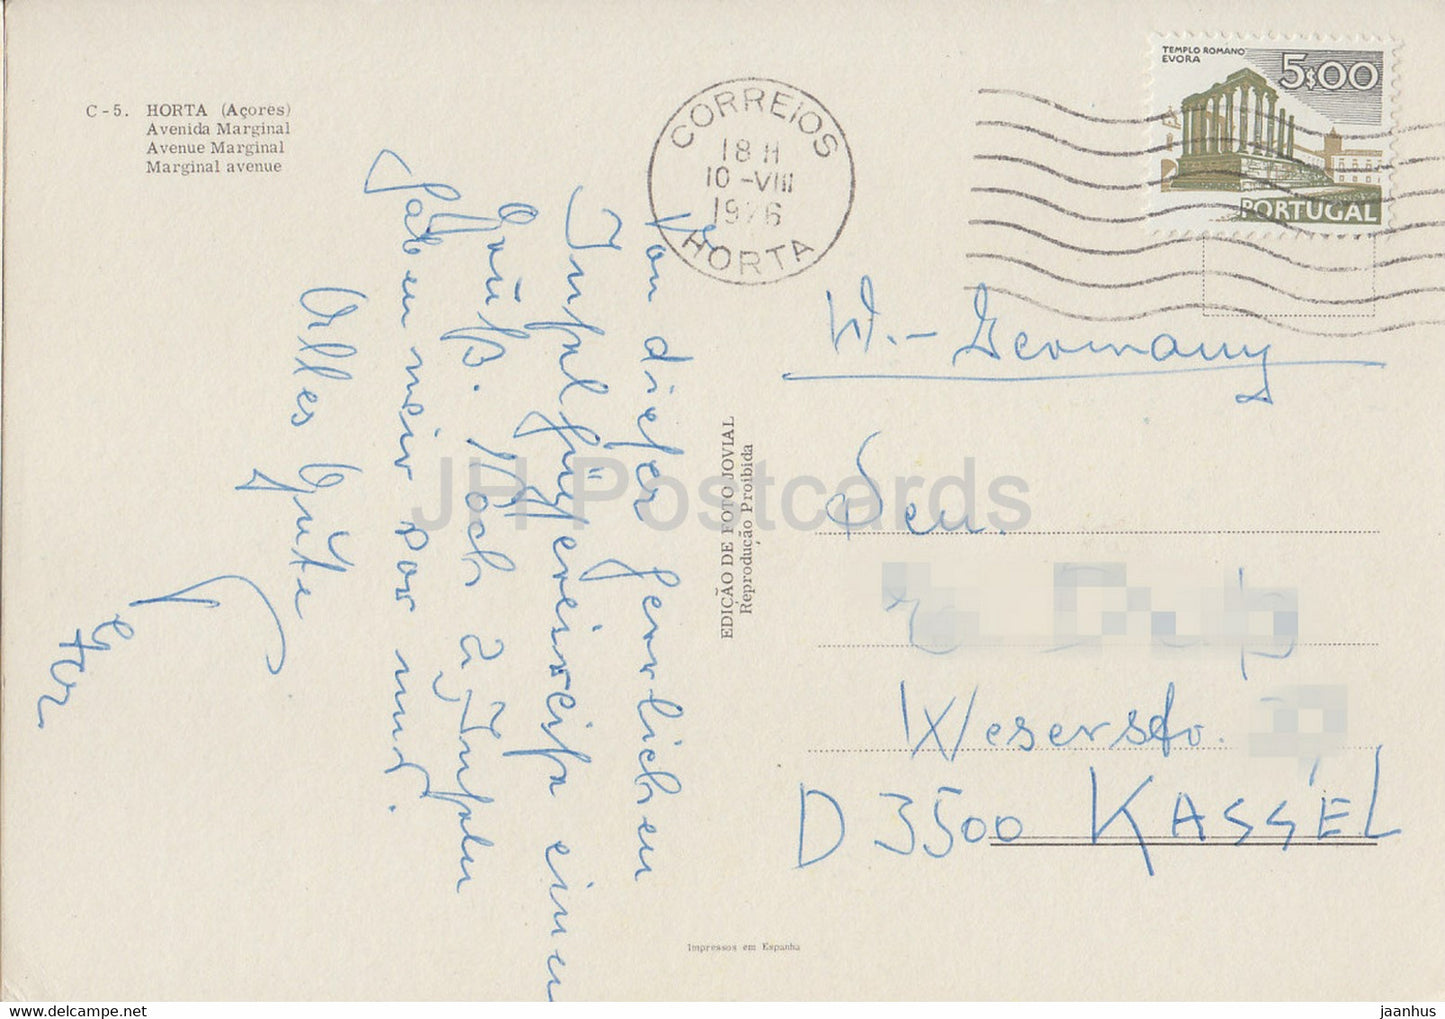 C-5. HORTA (Açores)
Avenida Marginal
Avenue Marginal
Marginal avenue
CORREIOS
18 H
10-VIII
1976
HORTA
TEMPLO ROMANO
EVORA
5$00
PORTUGAL
Von dieser herrlichen
Inselhüpferreise einen
Gruß. Noch 2 Inseln
haben wir vor uns.
Alles Gute
W.-Germany
Fam.
Weserstr.
D 3500 KASSEL
EDIÇÃO DE FOTO JOVIAL
Reprodução Proibida
Impressos em Espanha
JH Postcards
www.delcampe.net
jaanhus